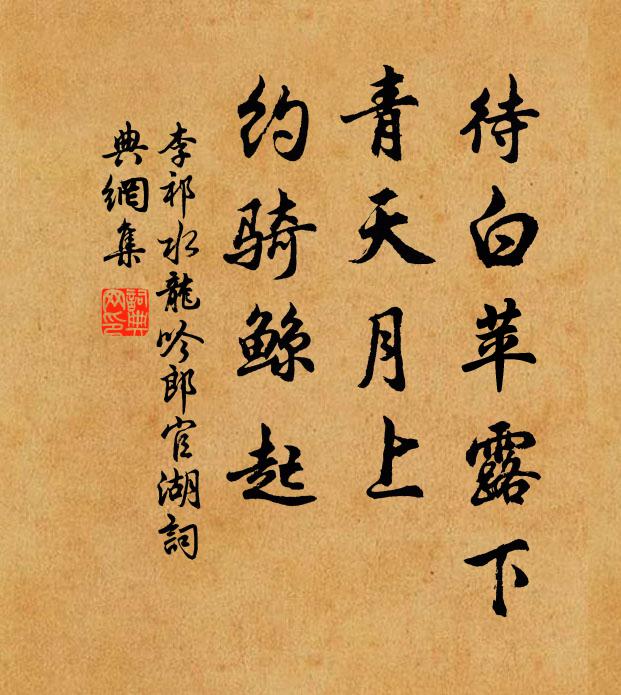 待白苹露下
青天月上
约骑鲸起
李祁水龍吟郎官湖詞
典網集
詞典
网印